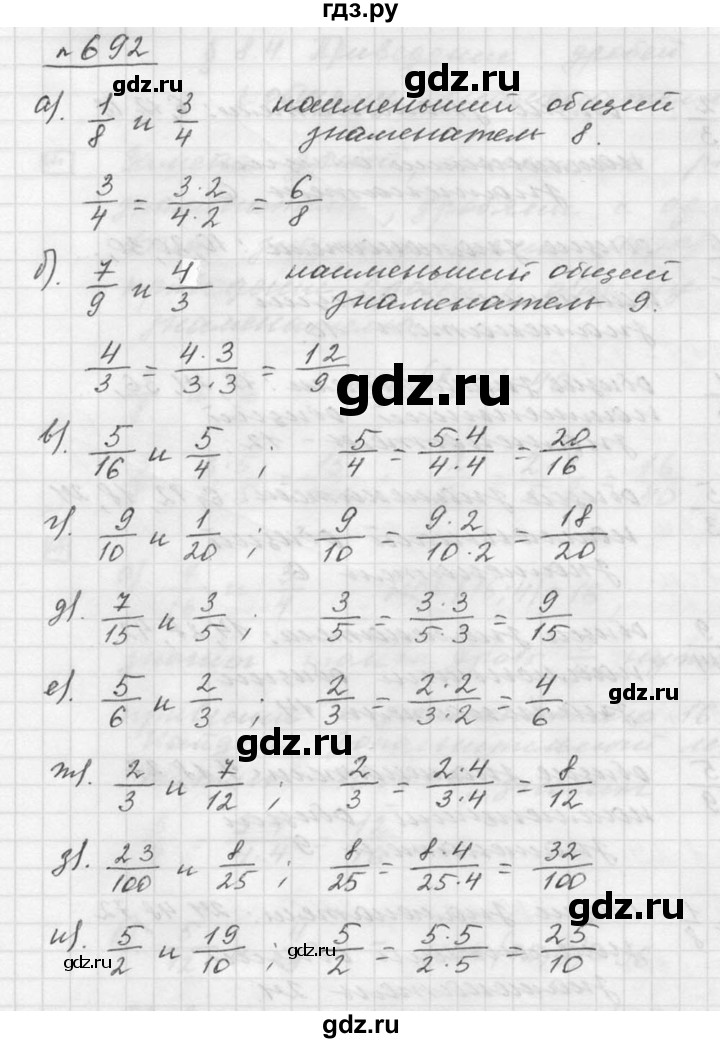 гдз.ру
№692
gdz.ru
gdz.ru
а). 1/8 и 3/4 наименьший общий
знаменатель 8.
3/4 = 3·2/4·2 = 6/8
б). 7/9 и 4/3 наименьший общий
знаменатель 9.
4/3 = 4·3/3·3 = 12/9
gdz.ru
в). 5/16 и 5/4 ; 5/4 = 5·4/4·4 = 20/16
г). 9/10 и 1/20 ; 9/10 = 9·2/10·2 = 18/20
д). 7/15 и 3/5 ; 3/5 = 3·3/5·3 = 9/15
е). 5/6 и 2/3 ; 2/3 = 2·2/3·2 = 4/6
gdz.ru
gdz.ru
ж). 2/3 и 7/12 ; 2/3 = 2·4/3·4 = 8/12
з). 23/100 и 8/25 ; 8/25 = 8·4/25·4 = 32/100
gdz.ru
и). 5/2 и 19/10 ; 5/2 = 5·5/2·5 = 25/10
gdz.ru
gdz.ru
gdz.ru